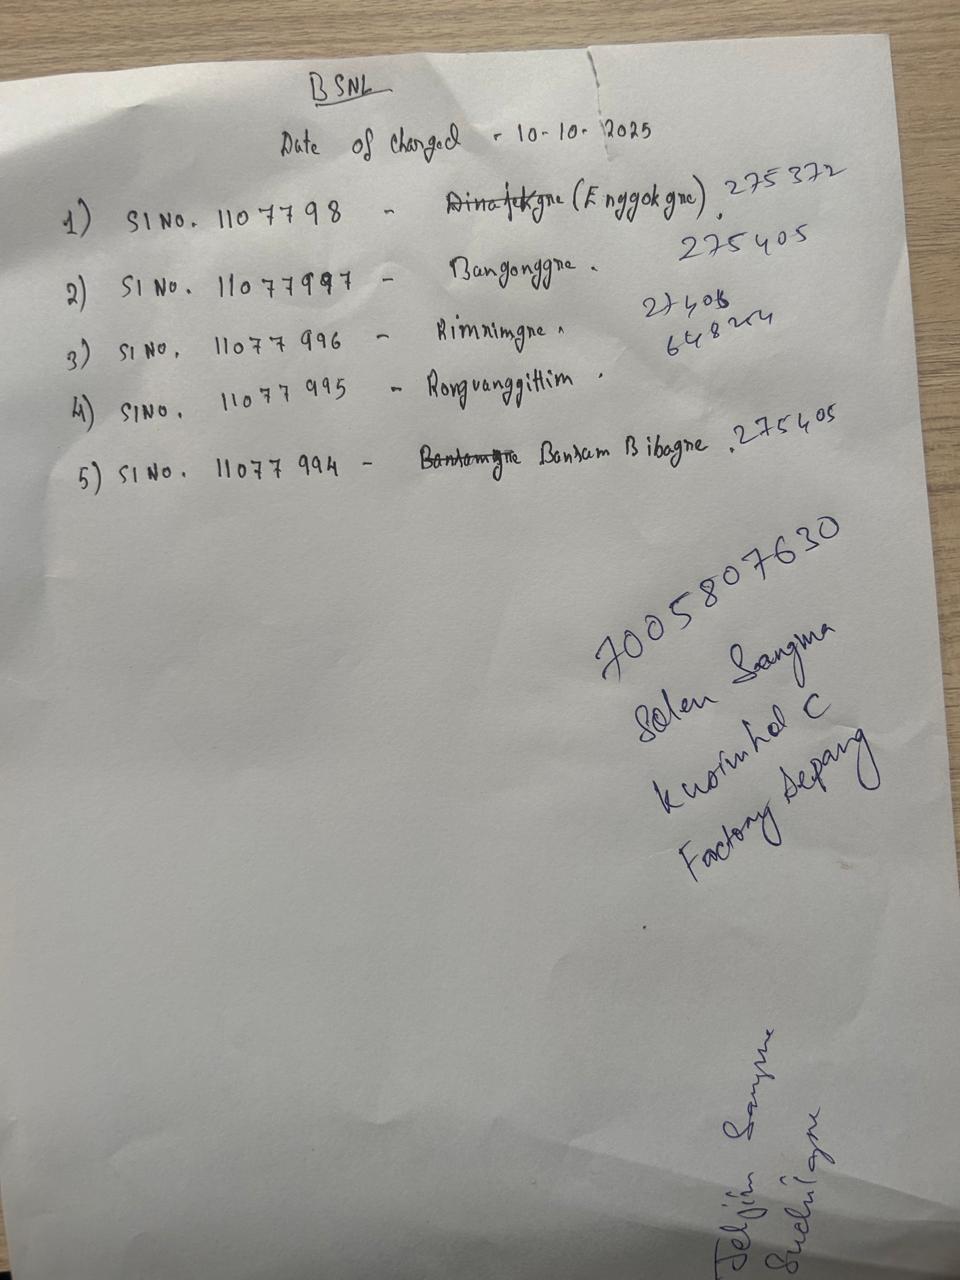 BSNL
Date of changed - 10-10-2025
1) SI NO. 11077998 - Dinajekgne (Enggokgne). 275372
2) SI NO. 11077997 - Bangonggne. 275405
3) SI NO. 11077996 - Rimnimgne. 27405
648254
4) SI NO. 11077995 - Ronguanggittim.
5) SI NO. 11077994 - Bansamgne Bansam Bibagne. 275405
7005807630
Solen Sangma
C
Factory Depang